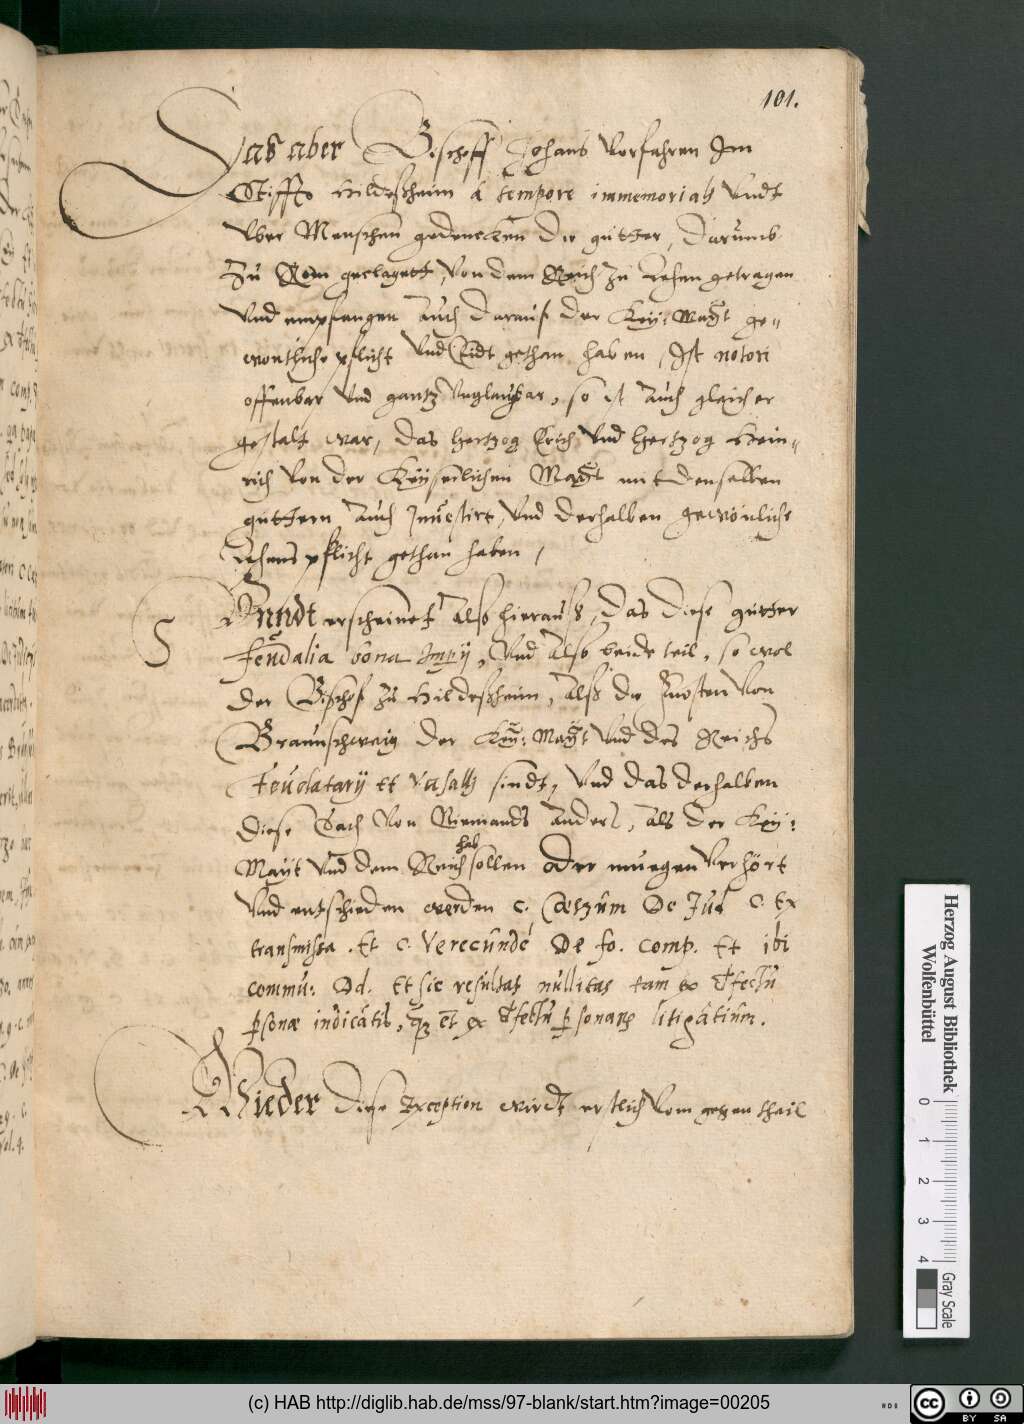 101.
Das aber Bischoff Johans Vorfahren Im
Stifft Hildeßheim à tempore immemoriali Vndt
Vber Menschen gedencken die gütter, darumb
Zu Rom geclagett, Von dem Reich zu Lehen getragen
Vnd empfangen auch darauf der Key: Maÿt ge=
wontliche pflicht Vnd Eidt gethan haben, Ist notori
offenbar Vnd gantz Vnglaugbar, so ist auch gleicher
gestalt war, das Hertzog Erich Vnd Hertzog Hein=
rich Von der Keyserlichen Mayt mit denselben
güttern auch Inuestirt, Vnd derhalben gewönliche
Lehens pflicht gethan haben,
Vnndt erscheinet Also hierauß, das diese gütter
feudalia bona Impij, Vnd also beide teil, so wol
der Bischof zu Hildeßheim, alß die Fursten Von
Braunschweig der Key: Mayt Vnd des Reichs
Feudatarij et Vasalli sindt, Vnd das derhalben
diese Sach Von Niemands anders, als der Key:
Mayt Vnd dem Reich sollen oder muegen Verhört
hab
Vnd entschieden werden c. Cæterum De Jud c. Ex
transmissa. Et c. Verecundè De fo. comp. Et ibi
commu: Dd. Et sic resultat nullitas tam ex dfectu
psonæ iudicātis, qz et ex dfectu psonarū litigātium.
Wieder diese Exception wirdt erstlich Vom gegen thail
Herzog August Bibliothek
Wolfenbüttel
0 1 2 3 4
Gray Scale
(c) HAB http://diglib.hab.de/mss/97-blank/start.htm?image=00205
cc BY SA